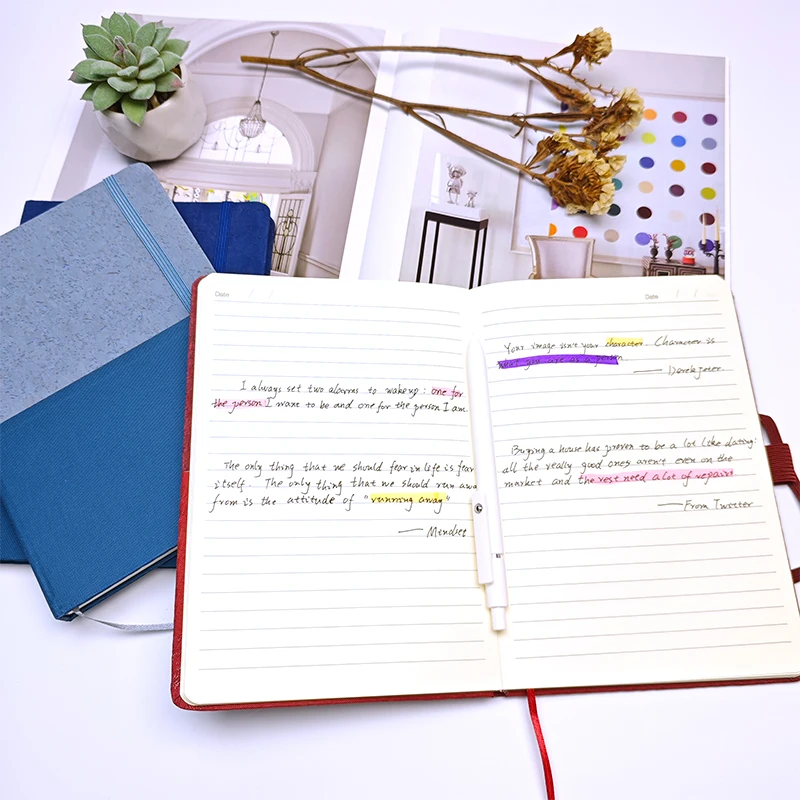 Date
I always set two alarms to wake up : one for
the person I want to be and one for the person I am
The only thing that we should fear in life is fear
itself. The only thing that we should run awa
from is the attitude of "running away"
—— Mindset
Date
Your image isn't your character. Character is
what you are as a person
—— Derek Jeter
Buying a house has proven to be a lot like dating:
all the really good ones aren't even on the
market and the rest need a lot of repairs
—— From Twitter